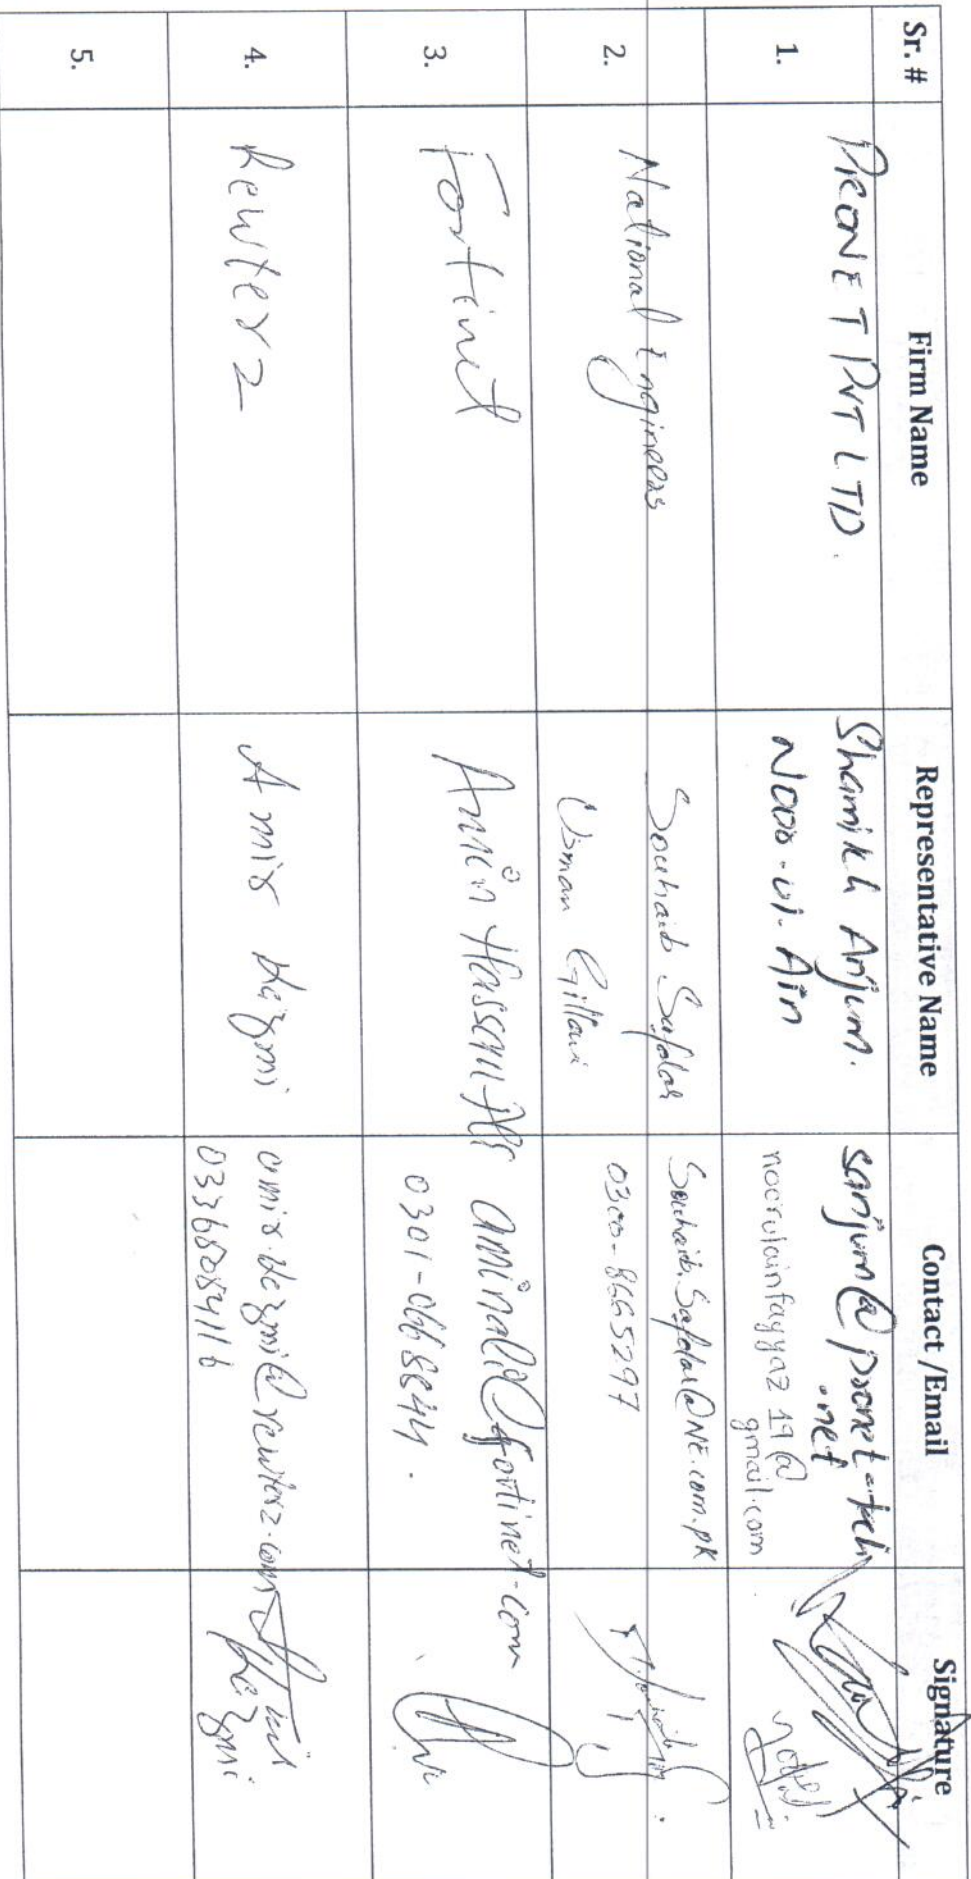 Sr. # Firm Name Representative Name Contact /Email Signature
1. PRONET PVT LTD. Shamikh Anjum. sanjum@pronet-tech
.net
Noor-ul-Ain noorulainfayyaz19@
gmail.com
2. National Engineers Souhaib Safdar Souhaib.Safdar@NE.com.pk
Usman Gillani 0300-8665297
3. Fortinet Amin Hassan Ali aminali@fortinet.com
0301-0668844.
4. Rewterz Amir Kazmi amir.kazmi@rewterz.com
Kazmi
5.